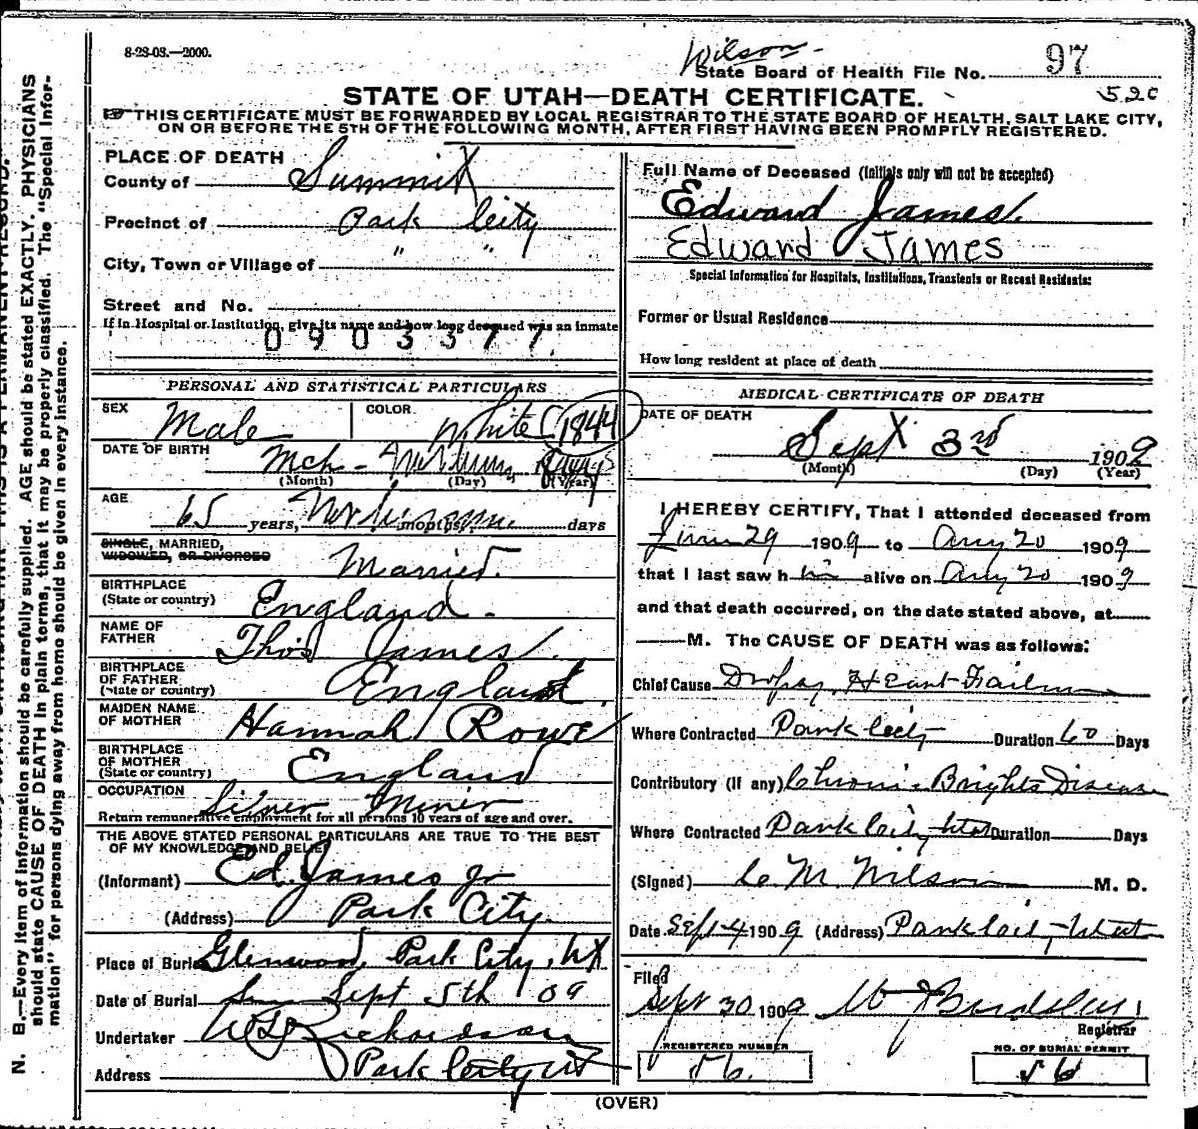 8-28-08.—2000.
Wilson
State Board of Health File No. 97
520
STATE OF UTAH—DEATH CERTIFICATE.
THIS CERTIFICATE MUST BE FORWARDED BY LOCAL REGISTRAR TO THE STATE BOARD OF HEALTH, SALT LAKE CITY,
ON OR BEFORE THE 5TH OF THE FOLLOWING MONTH, AFTER FIRST HAVING BEEN PROMPTLY REGISTERED.
PLACE OF DEATH
County of Summit
Precinct of Park City
City, Town or Village of " "
Street and No.
If in Hospital or Institution, give its name and how long deceased was an inmate
0903377
PERSONAL AND STATISTICAL PARTICULARS
SEX Male COLOR. White 1844
DATE OF BIRTH Mch -
(Month) (Day) (Year)
AGE 65 years, months, days
SINGLE, MARRIED,
WIDOWED, OR DIVORCED Married.
BIRTHPLACE
(State or country) England.
NAME OF
FATHER Thos James
BIRTHPLACE
OF FATHER
(State or country) England
MAIDEN NAME
OF MOTHER Hannah Rowe
BIRTHPLACE
OF MOTHER
(State or country) England
OCCUPATION Silver Miner
Return remunerative employment for all persons 10 years of age and over.
THE ABOVE STATED PERSONAL PARTICULARS ARE TRUE TO THE BEST
OF MY KNOWLEDGE AND BELIEF
(Informant) Ed. James Jr
(Address) Park City.
Place of Burial Glenwood, Park City, Ut
Date of Burial Sept 5th 09
Undertaker Richardson
Address Park City Ut
Full Name of Deceased (Initials only will not be accepted)
Edward James.
Edward James
Special Information for Hospitals, Institutions, Transients or Recent Residents:
Former or Usual Residence
How long resident at place of death
MEDICAL CERTIFICATE OF DEATH
DATE OF DEATH
Sept 3rd 1909
(Month) (Day) (Year)
I HEREBY CERTIFY, That I attended deceased from
June 29 1909 to Aug 20 1909
that I last saw him alive on Aug 20 1909
and that death occurred, on the date stated above, at
M. The CAUSE OF DEATH was as follows:
Chief Cause Dropsy, Heart Failure
Where Contracted Park City Duration 60 Days
Contributory (if any) Chronic Brights Disease
Where Contracted Park City Utah Duration Days
(Signed) C. M. Wilson M. D.
Date Sept 4 1909 (Address) Park City, Utah
Filed
Sept 30 1909
Registrar
REGISTERED NUMBER
56.
NO. OF BURIAL PERMIT
56
(OVER)
N. B.—Every item of information should be carefully supplied. AGE should be stated EXACTLY. PHYSICIANS
should state CAUSE OF DEATH in plain terms, that it may be properly classified. The "Special Infor-
mation" for persons dying away from home should be given in every instance.